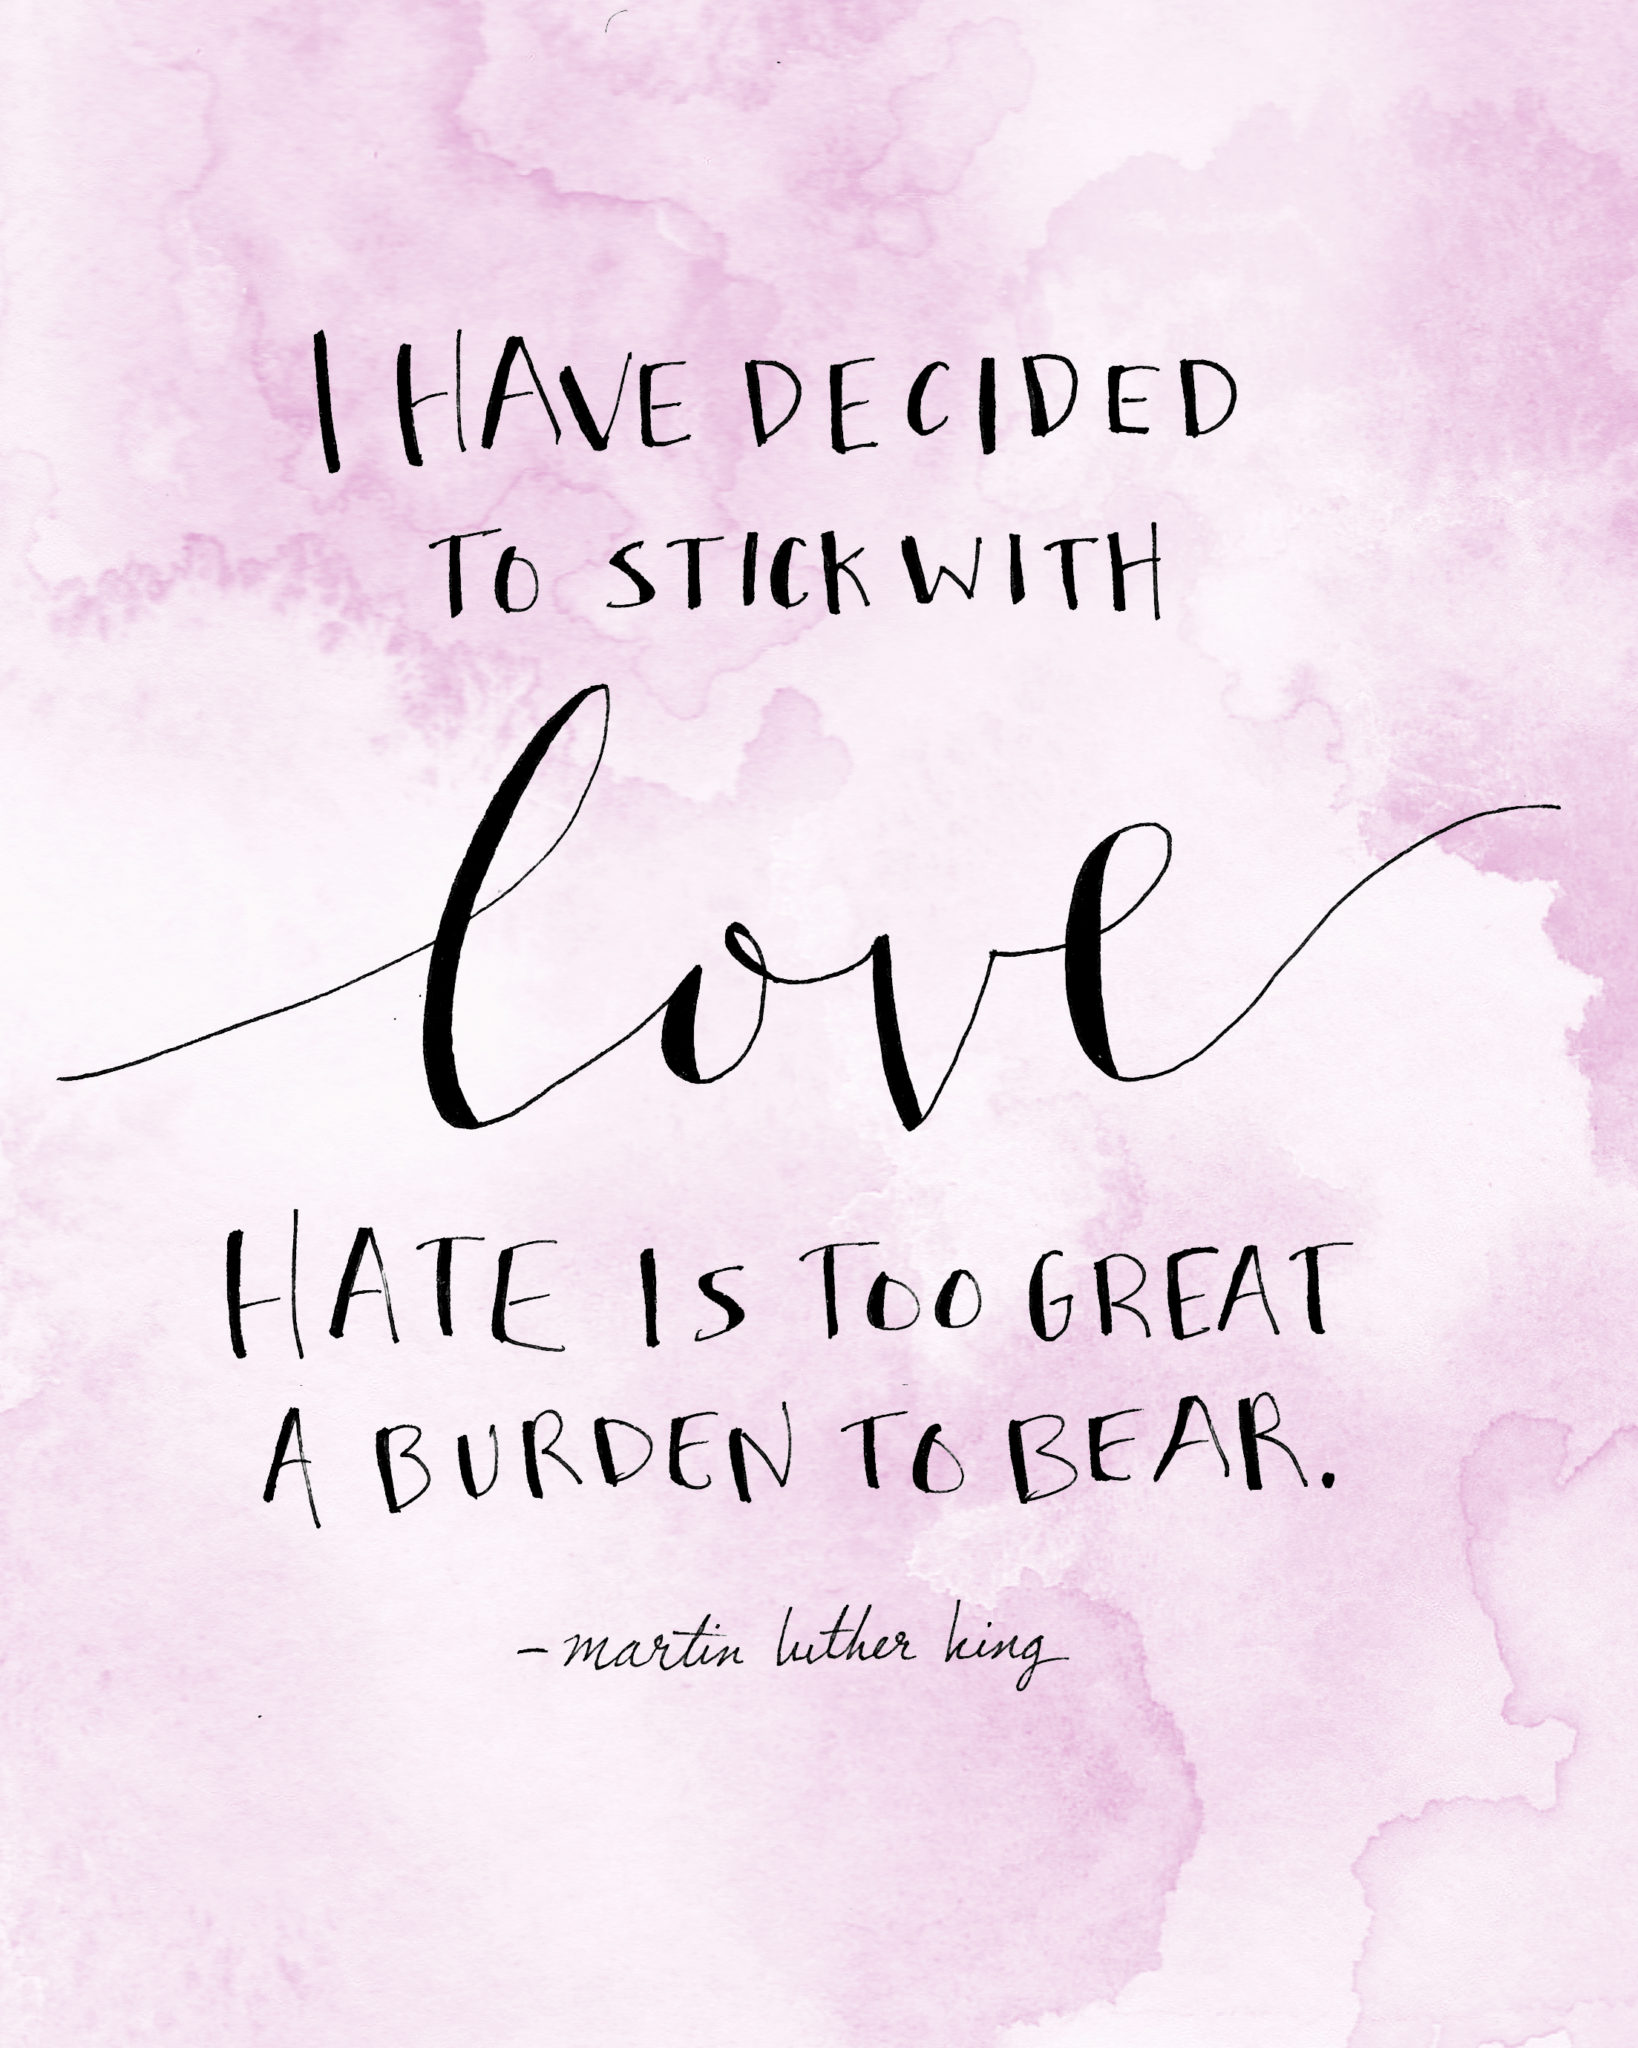 I HAVE DECIDED
TO STICK WITH
love
HATE IS TOO GREAT
A BURDEN TO BEAR.
- martin luther king